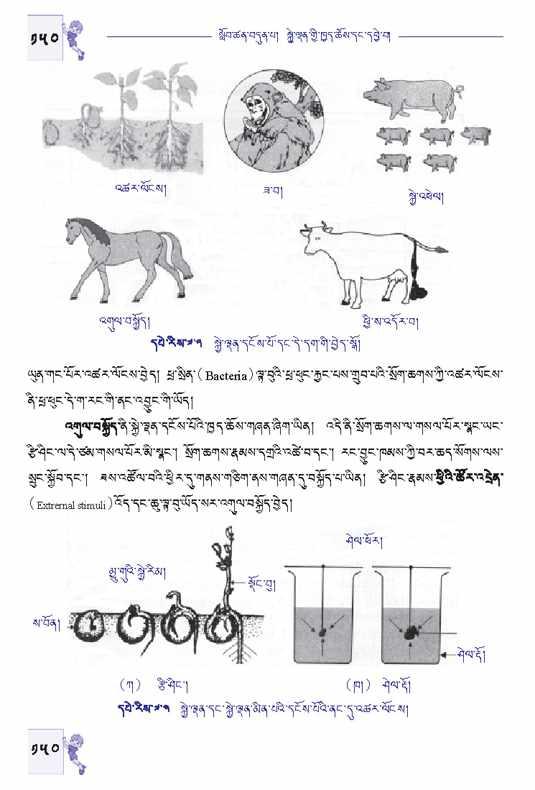 ༡༥༠
སློབ་ཚན་བདུན་པ། སྐྱེ་ལྡན་གྱི་ཁྱད་ཆོས་དང་དབྱེ་བ།
འཚར་ལོངས།
ཟ་བ།
སྐྱེ་འཕེལ།
འགུལ་བསྐྱོད།
ཕྱི་ས་འདོར་བ།
དཔེ་རིས་༧་༡ སྐྱེ་ལྡན་དངོས་པོ་དང་དེ་དག་གི་བྱེད་སྒོ།
ཡུན་གང་པོར་འཚར་ལོངས་བྱེད། ཕྲ་སྲིན་(Bacteria)ལྟ་བུའི་ཕྲ་ཕུང་རྐྱང་པས་གྲུབ་པའི་སྲོག་ཆགས་ཀྱི་འཚར་ལོངས་
ནི་ཕྲ་ཕུང་དེ་ག་རང་གི་ནང་འབྱུང་གི་ཡོད།
འགུལ་བསྐྱོད་ནི་སྐྱེ་ལྡན་དངོས་པོའི་ཁྱད་ཆོས་གཞན་ཞིག་ཡིན། འདི་ནི་སྲོག་ཆགས་ལ་གསལ་པོར་སྣང་ཡང་
རྩི་ཤིང་ལ་དེ་ཙམ་གསལ་པོར་མི་སྣང་། སྲོག་ཆགས་རྣམས་དགྲའི་འཚེ་བ་དང་། རང་བྱུང་ཁམས་ཀྱི་བར་ཆད་སོགས་ལས་
སྲུང་སྐྱོབ་དང་། ཟས་འཚོལ་བའི་ཕྱིར་དུ་གནས་གཅིག་ནས་གཞན་དུ་བསྐྱོད་པ་ཡིན། རྩི་ཤིང་རྣམས་ཕྱིའི་ཚོར་འདྲེན་
(Extrernal stimuli)འོད་དང་ཆུ་ལྟ་བུ་ཡོད་སར་འགུལ་བསྐྱོད་བྱེད།
ཤེལ་ཕོར།
མྱུ་གུའི་སྐྱེ་རིམ།
སྡོང་བུ།
ས་བོན།
ཤེལ་རྡོ།
(ཀ) རྩི་ཤིང་།
(ཁ) ཤེལ་རྡོ།
དཔེ་རིས་༧་༢ སྐྱེ་ལྡན་དང་སྐྱེ་ལྡན་མིན་པའི་དངོས་པོའི་ནང་དུ་འཚར་ལོངས།
༡༥༠